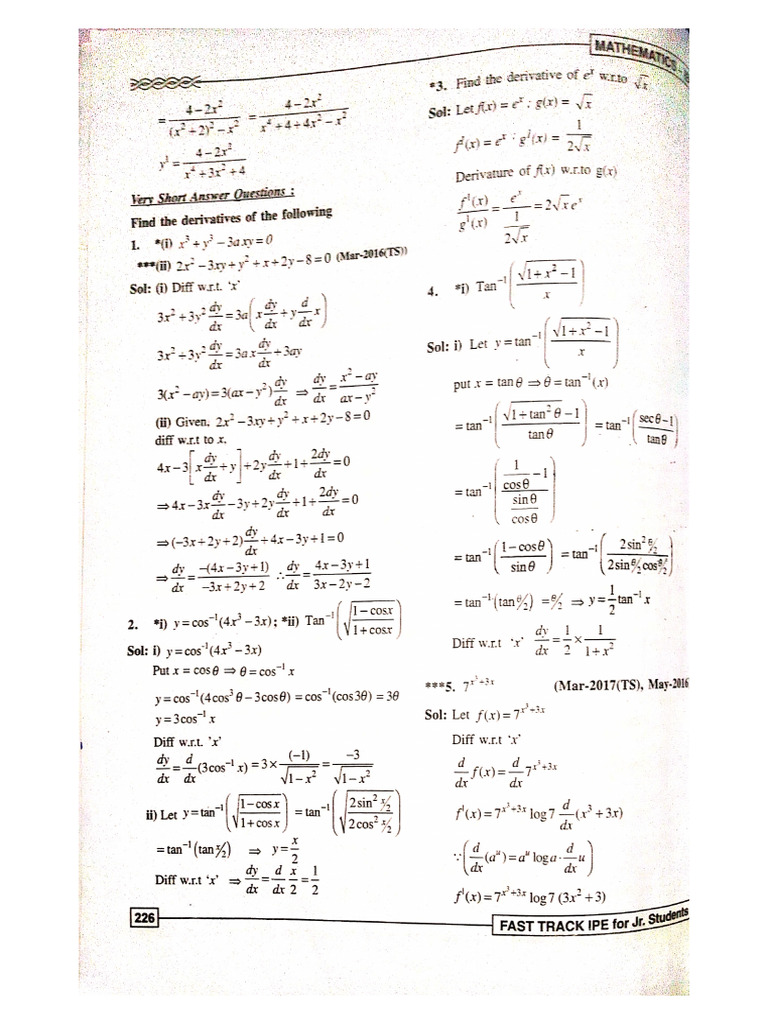 MATHEMATICS -
= (4 − 2x²)/((x² + 2)² − x²) = (4 − 2x²)/(x⁴ + 4 + 4x² − x²)
y¹ = (4 − 2x²)/(x⁴ + 3x² + 4)
Very Short Answer Questions :
Find the derivatives of the following
1. *(i) x³ + y³ − 3axy = 0
***(ii) 2x² − 3xy + y² + x + 2y − 8 = 0 (Mar-2016(TS))
Sol: (i) Diff w.r.t. ‘x’
3x² + 3y² dy/dx = 3a(x dy/dx + y d/dx x)
3x² + 3y² dy/dx = 3ax dy/dx + 3ay
3(x² − ay) = 3(ax − y²) dy/dx ⇒ dy/dx = (x² − ay)/(ax − y²)
(ii) Given, 2x² − 3xy + y² + x + 2y − 8 = 0
diff w.r.t to x.
4x − 3[x dy/dx + y] + 2y dy/dx + 1 + 2dy/dx = 0
⇒ 4x − 3x dy/dx − 3y + 2y dy/dx + 1 + 2dy/dx = 0
⇒ (−3x + 2y + 2) dy/dx + 4x − 3y + 1 = 0
⇒ dy/dx = −(4x − 3y + 1)/(−3x + 2y + 2) ∴ dy/dx = (4x − 3y + 1)/(3x − 2y − 2)
2. *i) y = cos⁻¹(4x³ − 3x); *ii) Tan⁻¹(√((1 − cosx)/(1 + cosx)))
Sol: i) y = cos⁻¹(4x³ − 3x)
Put x = cosθ ⇒ θ = cos⁻¹ x
y = cos⁻¹(4cos³ θ − 3cosθ) = cos⁻¹(cos3θ) = 3θ
y = 3cos⁻¹ x
Diff w.r.t. ’x’
dy/dx = d/dx (3cos⁻¹ x) = 3 × (−1)/√(1 − x²) = −3/√(1 − x²)
ii) Let y = tan⁻¹(√((1 − cos x)/(1 + cos x))) = tan⁻¹(√((2sin² x/2)/(2cos² x/2)))
= tan⁻¹(tan x/2) ⇒ y = x/2
Diff w.r.t ‘x’ ⇒ dy/dx = d/dx x/2 = 1/2
*3. Find the derivative of eˣ w.r.to √x
Sol: Let f(x) = eˣ ; g(x) = √x
f¹(x) = eˣ ; g¹(x) = 1/(2√x)
Derivature of f(x) w.r.to g(x)
f¹(x)/g¹(x) = eˣ/(1/(2√x)) = 2√x eˣ
4. *i) Tan⁻¹((√(1 + x²) − 1)/x)
Sol: i) Let y = tan⁻¹((√(1 + x²) − 1)/x)
put x = tanθ ⇒ θ = tan⁻¹(x)
= tan⁻¹((√(1 + tan² θ) − 1)/tanθ) = tan⁻¹((secθ − 1)/tanθ)
= tan⁻¹((1/cosθ − 1)/(sinθ/cosθ))
= tan⁻¹((1 − cosθ)/sinθ) = tan⁻¹((2sin² θ/2)/(2sin θ/2 cos θ/2))
= tan⁻¹(tan θ/2) = θ/2 ⇒ y = 1/2 tan⁻¹ x
Diff w.r.t ‘x’ dy/dx = 1/2 × 1/(1 + x²)
***5. 7^(x³+3x) (Mar-2017(TS), May-2016
Sol: Let f(x) = 7^(x³+3x)
Diff w.r.t ‘x’
d/dx f(x) = d/dx 7^(x³+3x)
f¹(x) = 7^(x³+3x) log7 d/dx (x³ + 3x)
∵ (d/dx (aᵘ) = aᵘ log a · d/dx u)
f¹(x) = 7^(x³+3x) log7 (3x² + 3)
226
FAST TRACK IPE for Jr. Students